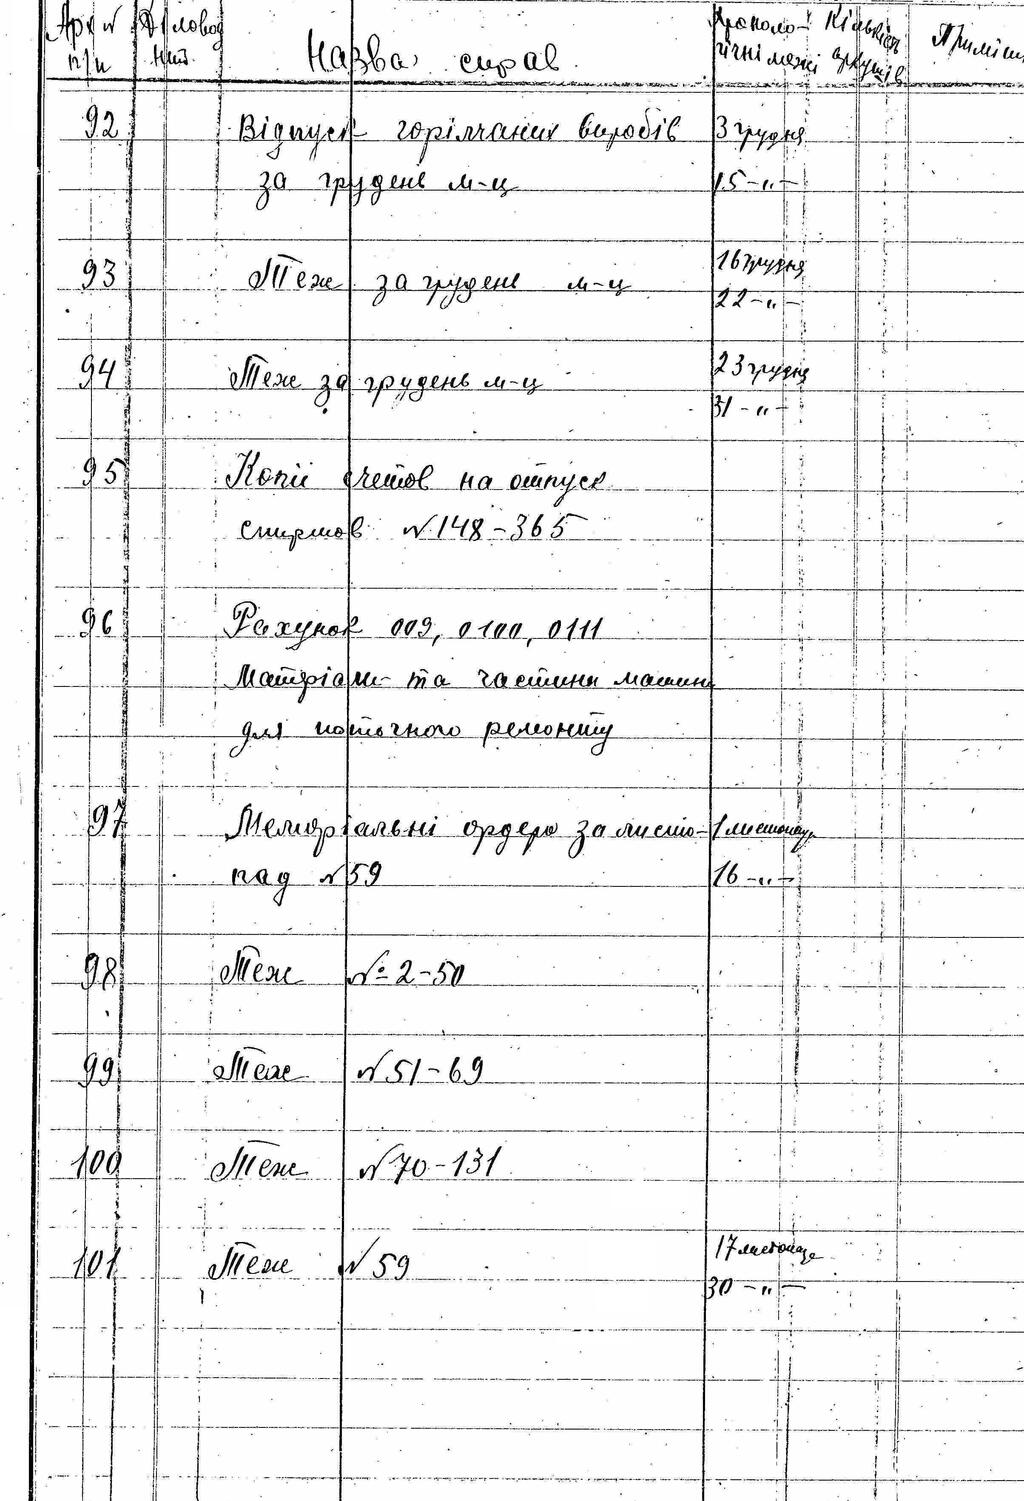 Арх № Діловод Назва справ Хроноло- Кількість Приміт
п/п ний. гічні межі аркушів
92 Відпуск горілчаних виробів 3 грудня
за грудень м-ц 15 -„-
93 Теж за грудень м-ц 16 грудня
22 -„-
94 Теж за грудень м-ц 23 грудня
31 -„-
95 Копії счетов на отпуск
спиртов №148-365
96 Рахунок 009, 0100, 0111
Матріали та частини машин
для поточного ремонту
97 Меморіальні ордера за листо- 1 листопад
пад №59 16 -„-
98 Теж № 2-50
99 Теж №51-69
100 Теж №70-131
101 Теж №59 17 листопада
30 -„-